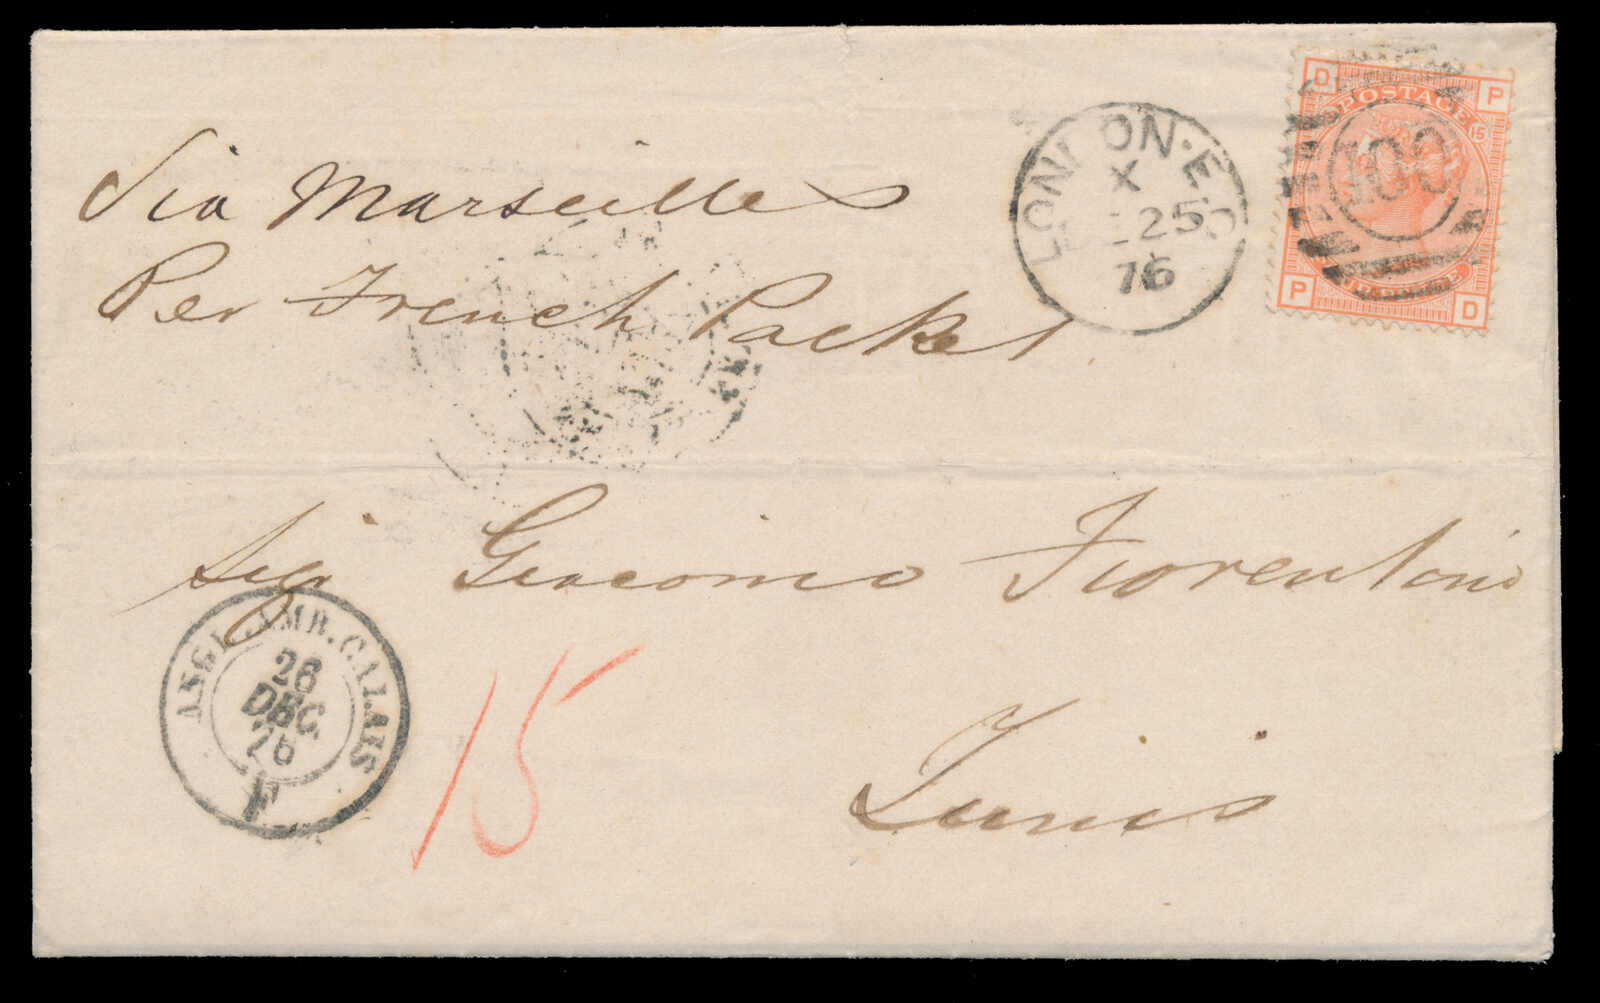 Via Marseilles
Per French Packet
LONDON·E C
X
25
76
D P
POSTAGE
15
100
P D
Sigr Giacomo Fiorentino
Tunis
ANGL. AMB. CALAIS
26
DEC
76
F
15